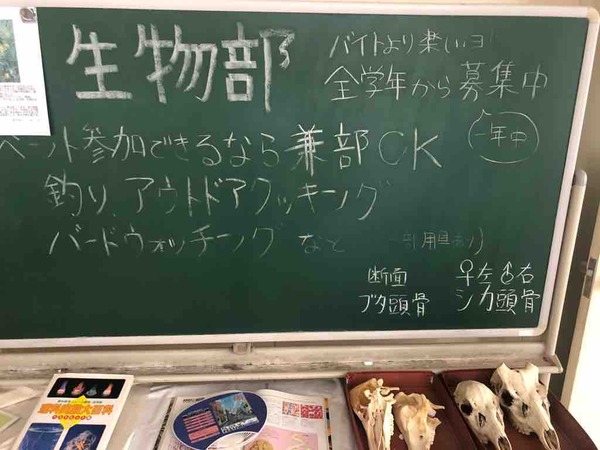 生物部
バイトより楽しいヨ!
全学年から募集中
一年中
ベント参加できるなら兼部OK
釣り、アウトドアクッキング
バードウォッチング など
断面
ブタ頭骨
♀左 ♂右
シカ頭骨